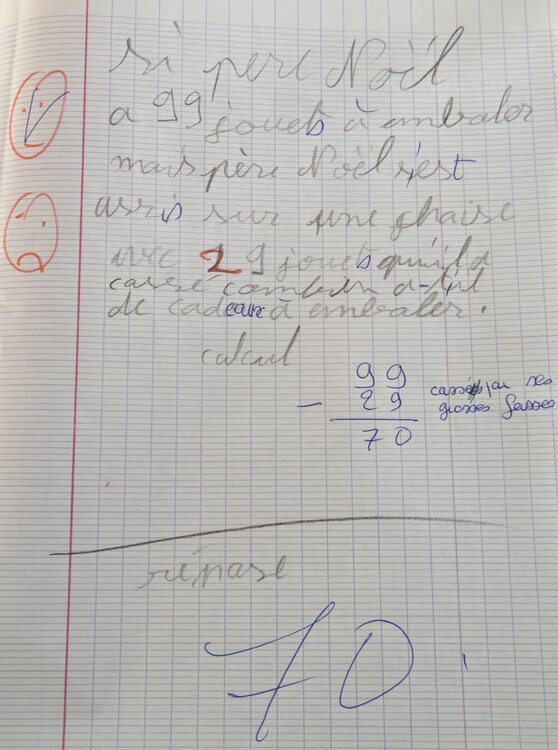 si père Noël
a 99 jouets à embaler
mais père Noël s'est
assis sur une chaise
avec 29 jouets qu'il a
cassé combien a-t-il
de cadeaux à embaler.
calcul
99
- 29 cassés par ses
grosses fesses
70
réponse
70